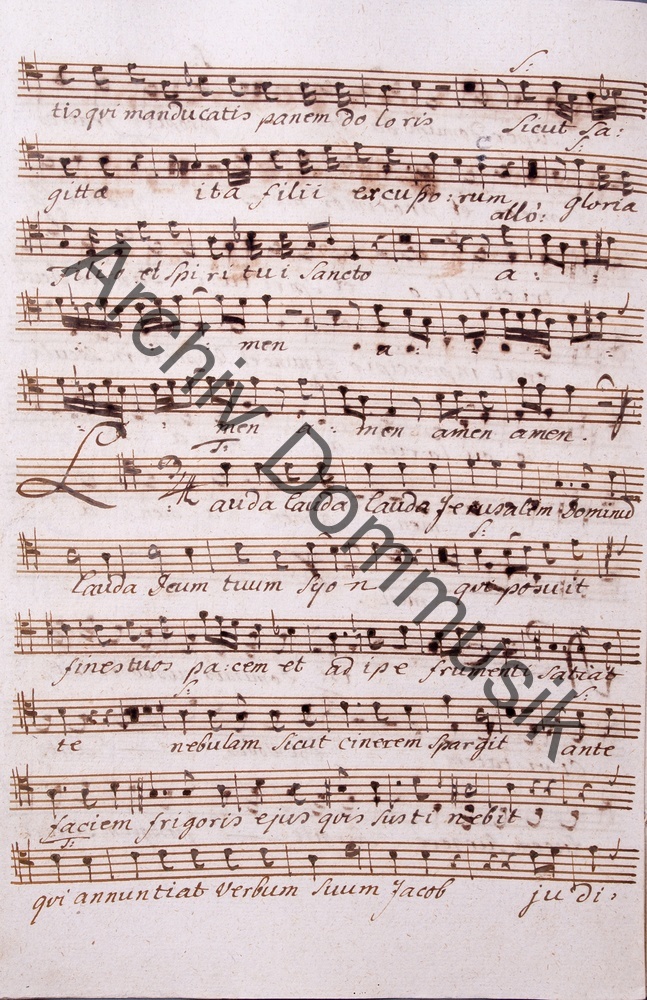 S:
tis qvi manducatis panem do lo ris sicut sa:
S:
gittæ ita filii excusso: rum gloria
allo:
filio et Spi ri tu i Sancto a :
men a :
men a : men amen amen .
T:
Lauda lauda lauda Jerusalem Dominū
S:
lauda Deum tuum Syo n qvi posuit
fines tuos pa: cem et adipe frumenti satiat
S:
te nebulam sicut cinerem spargit ante
S:
faciem frigoris ejus qvis susti nebit
T:
qvi annuntiat Verbum suum Jacob ju di:
Archiv Dommusik